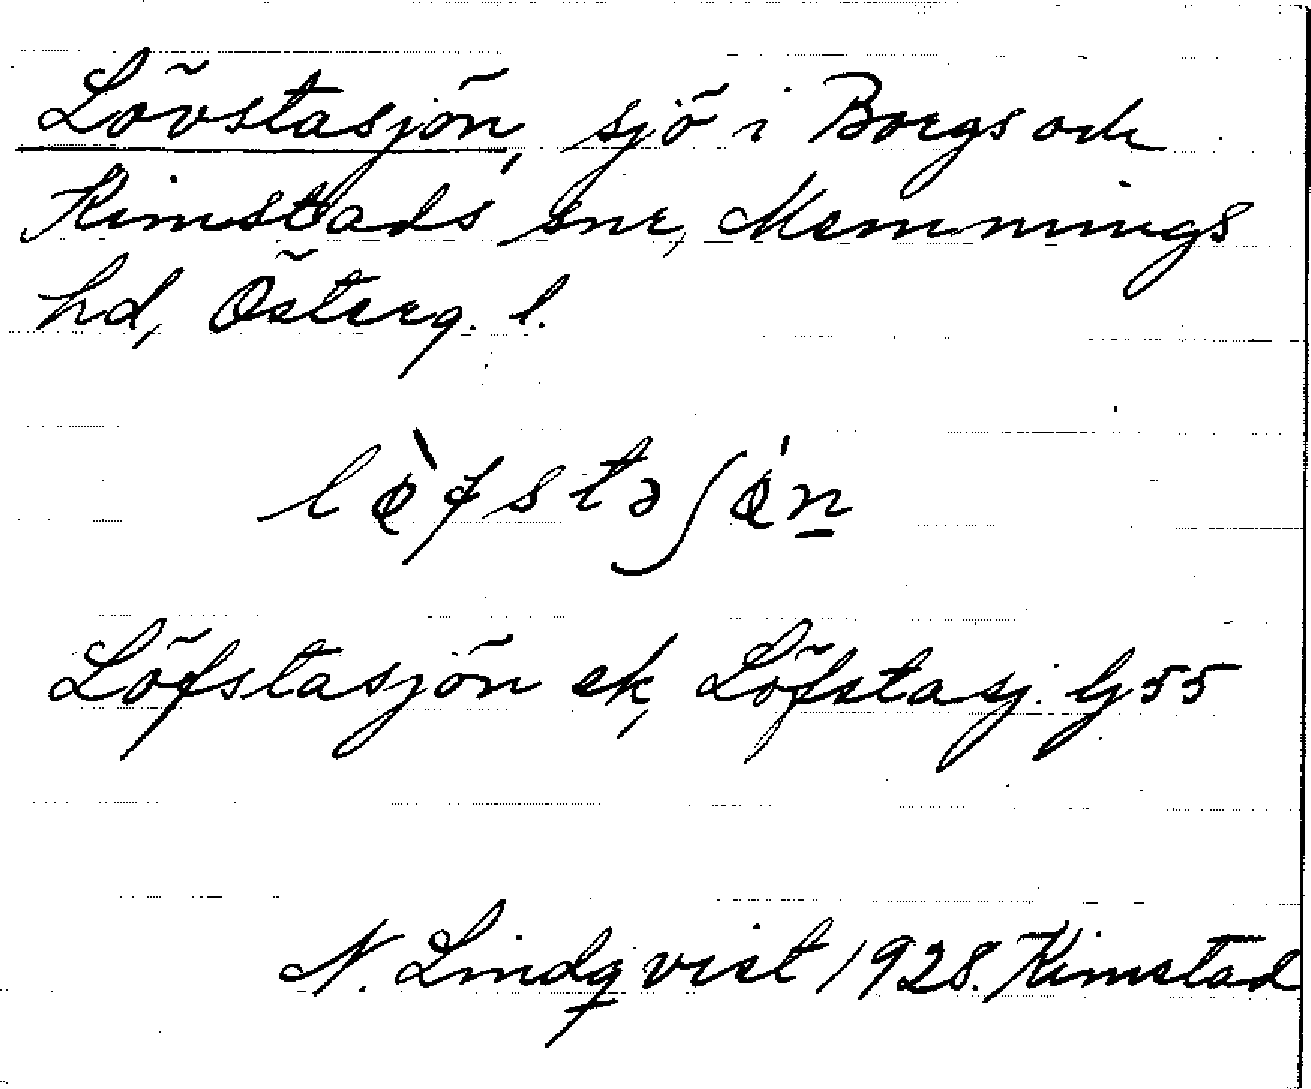 Lövstasjön, sjö i Borgs och
Kimstads snr, Memmings
hd, Österg. l.
lø̀fstəʃǿn
Löfstasjön ek, Löfstasj. G 55
N. Lindqvist 1928. Kimstad